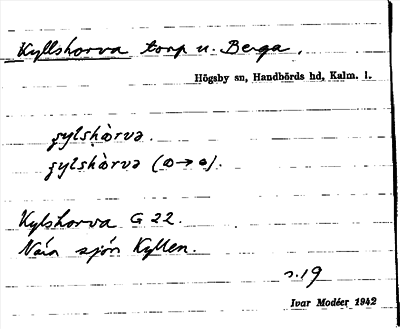 Kyllshorva torp u. Berga.
Högsby sn, Handbörds hd, Kalm. l.
ȿylshòrvə.
ȿylshòrvə (o→ɵ).
Kylshorva G 22.
Nära sjön Kyllen.
s. 19
Ivar Modéer 1942